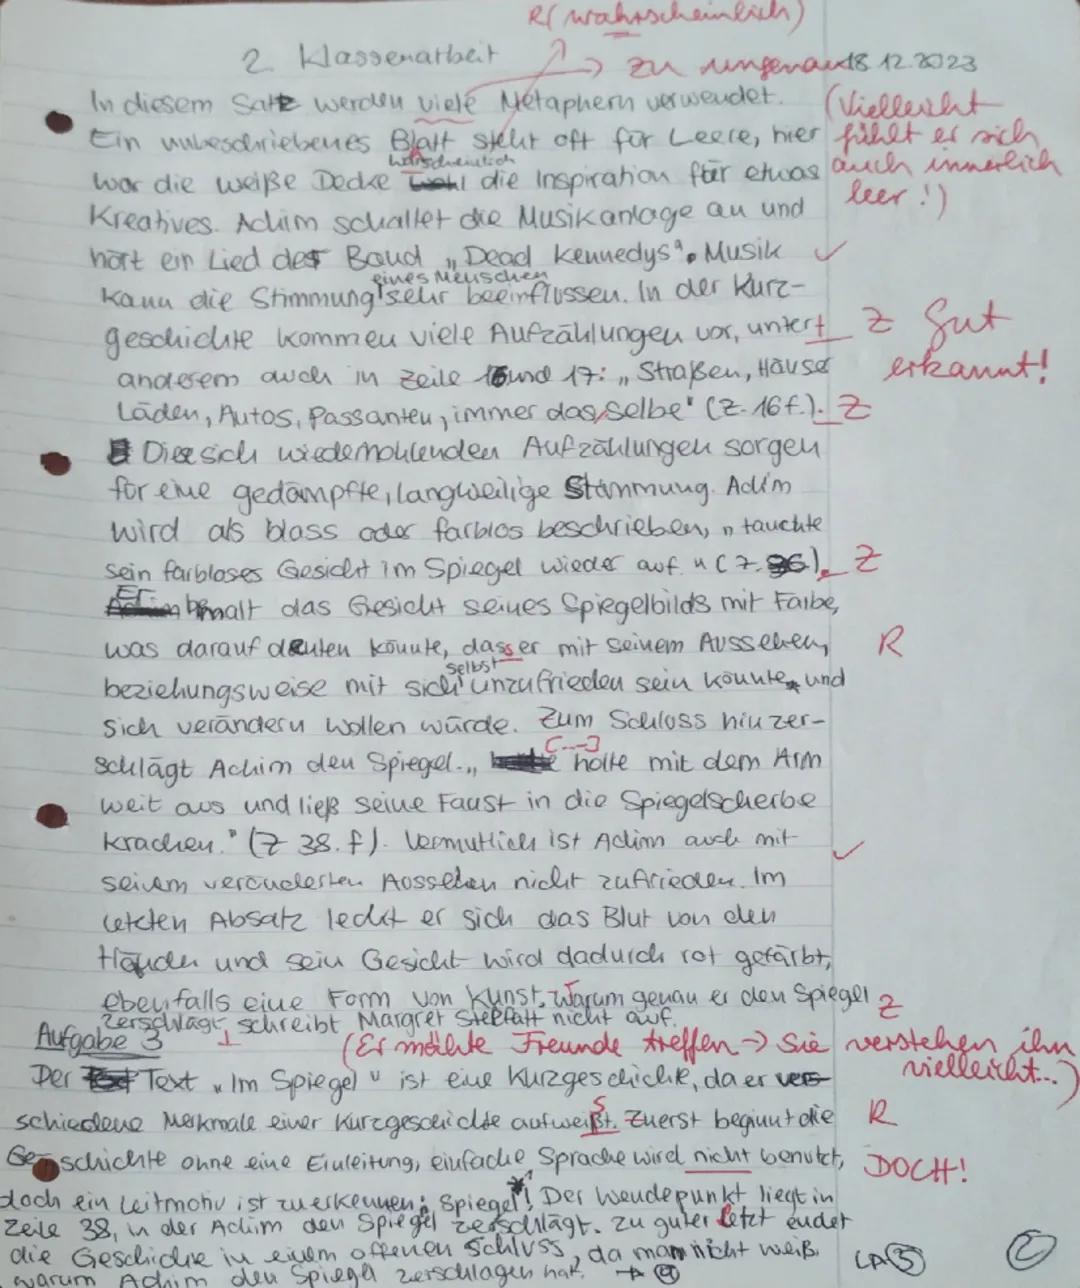 R( wahrscheinlich)
2. Klassenarbeit → zu ungenau 18.12.2023
In diesem Satz werden viele Metaphern verwendet. (Vielleicht
Ein unbeschriebenes Blatt steht oft für Leere, hier fühlt er sich
wahrscheinlich
war die weiße Decke wohl die Inspiration für etwas auch innerlich
Kreatives. Achim schaltet die Musikanlage an und leer!)
hört ein Lied der Band „Dead Kennedys". Musik ✓
eines Menschen
kann die Stimmung sehr beeinflussen. In der Kurz-
geschichte kommen viele Aufzählungen vor, untert Z Gut
anderem auch in Zeile 16 und 17: „Straßen, Häuser erkannt!
Läden, Autos, Passanten, immer das selbe" (Z. 16 f.). Z
Die sich wiedehohlenden Aufzählungen sorgen
für eine gedämpfte, langweilige Stimmung. Achim
wird als blass oder farblos beschrieben, „ tauchte
sein farbloses Gesicht im Spiegel wieder auf." (Z. 36). Z
Er
bemalt das Gesicht seines Spiegelbilds mit Farbe,
was darauf deuten könnte, dass er mit seinem Aussehen, R
selbst
beziehungsweise mit sich unzufrieden sein könnte und
sich verändern wollen würde. Zum Schluss hin zer-
[...]
schlägt Achim den Spiegel. „ holte mit dem Arm
weit aus und ließ seine Faust in die Spiegelscherbe
krachen." (Z 38. f). Vermutlich ist Achim auch mit ✓
seinem veränderten Aussehen nicht zufrieden. Im
letzten Absatz leckt er sich das Blut von den
Händen und sein Gesicht wird dadurch rot gefärbt,
ebenfalls eine Form von Kunst. Warum genau er den Spiegel Z
zerschlägt, schreibt Margret Steffatt nicht auf.
Aufgabe 3 (Er möchte Freunde treffen → Sie verstehen ihn
vielleicht...)
Der Text „Im Spiegel" ist eine Kurzgeschichte, da er ver-
s
schiedene Merkmale einer Kurzgeschichte aufweißt. Zuerst beginnt die R
Geschichte ohne eine Einleitung, einfache Sprache wird nicht benutzt, DOCH!
doch ein Leitmotiv ist zu erkennen: Spiegel*! Der Wendepunkt liegt in
Zeile 38, in der Achim den Spiegel zerschlägt. Zu guter letzt endet
die Geschichte in einem offenen Schluss, da man nicht weiß,
warum Achim den Spiegel zerschlagen hat.